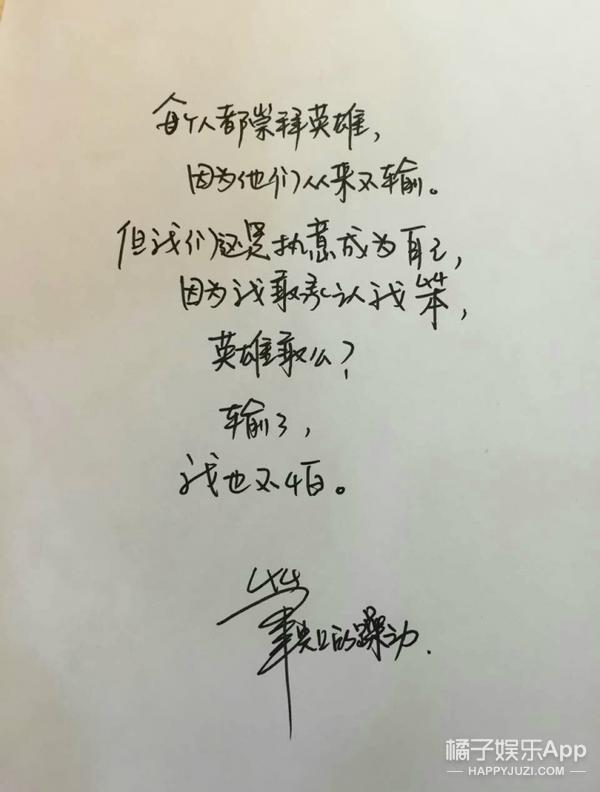 每个人都崇拜英雄，
因为他们从来不输。
但我们还是执意成为自己，
因为我敢承认我笨，
英雄敢么？
输了，
我也不怕。
的躁动.
橘子娱乐App
HAPPYJUZI.COM